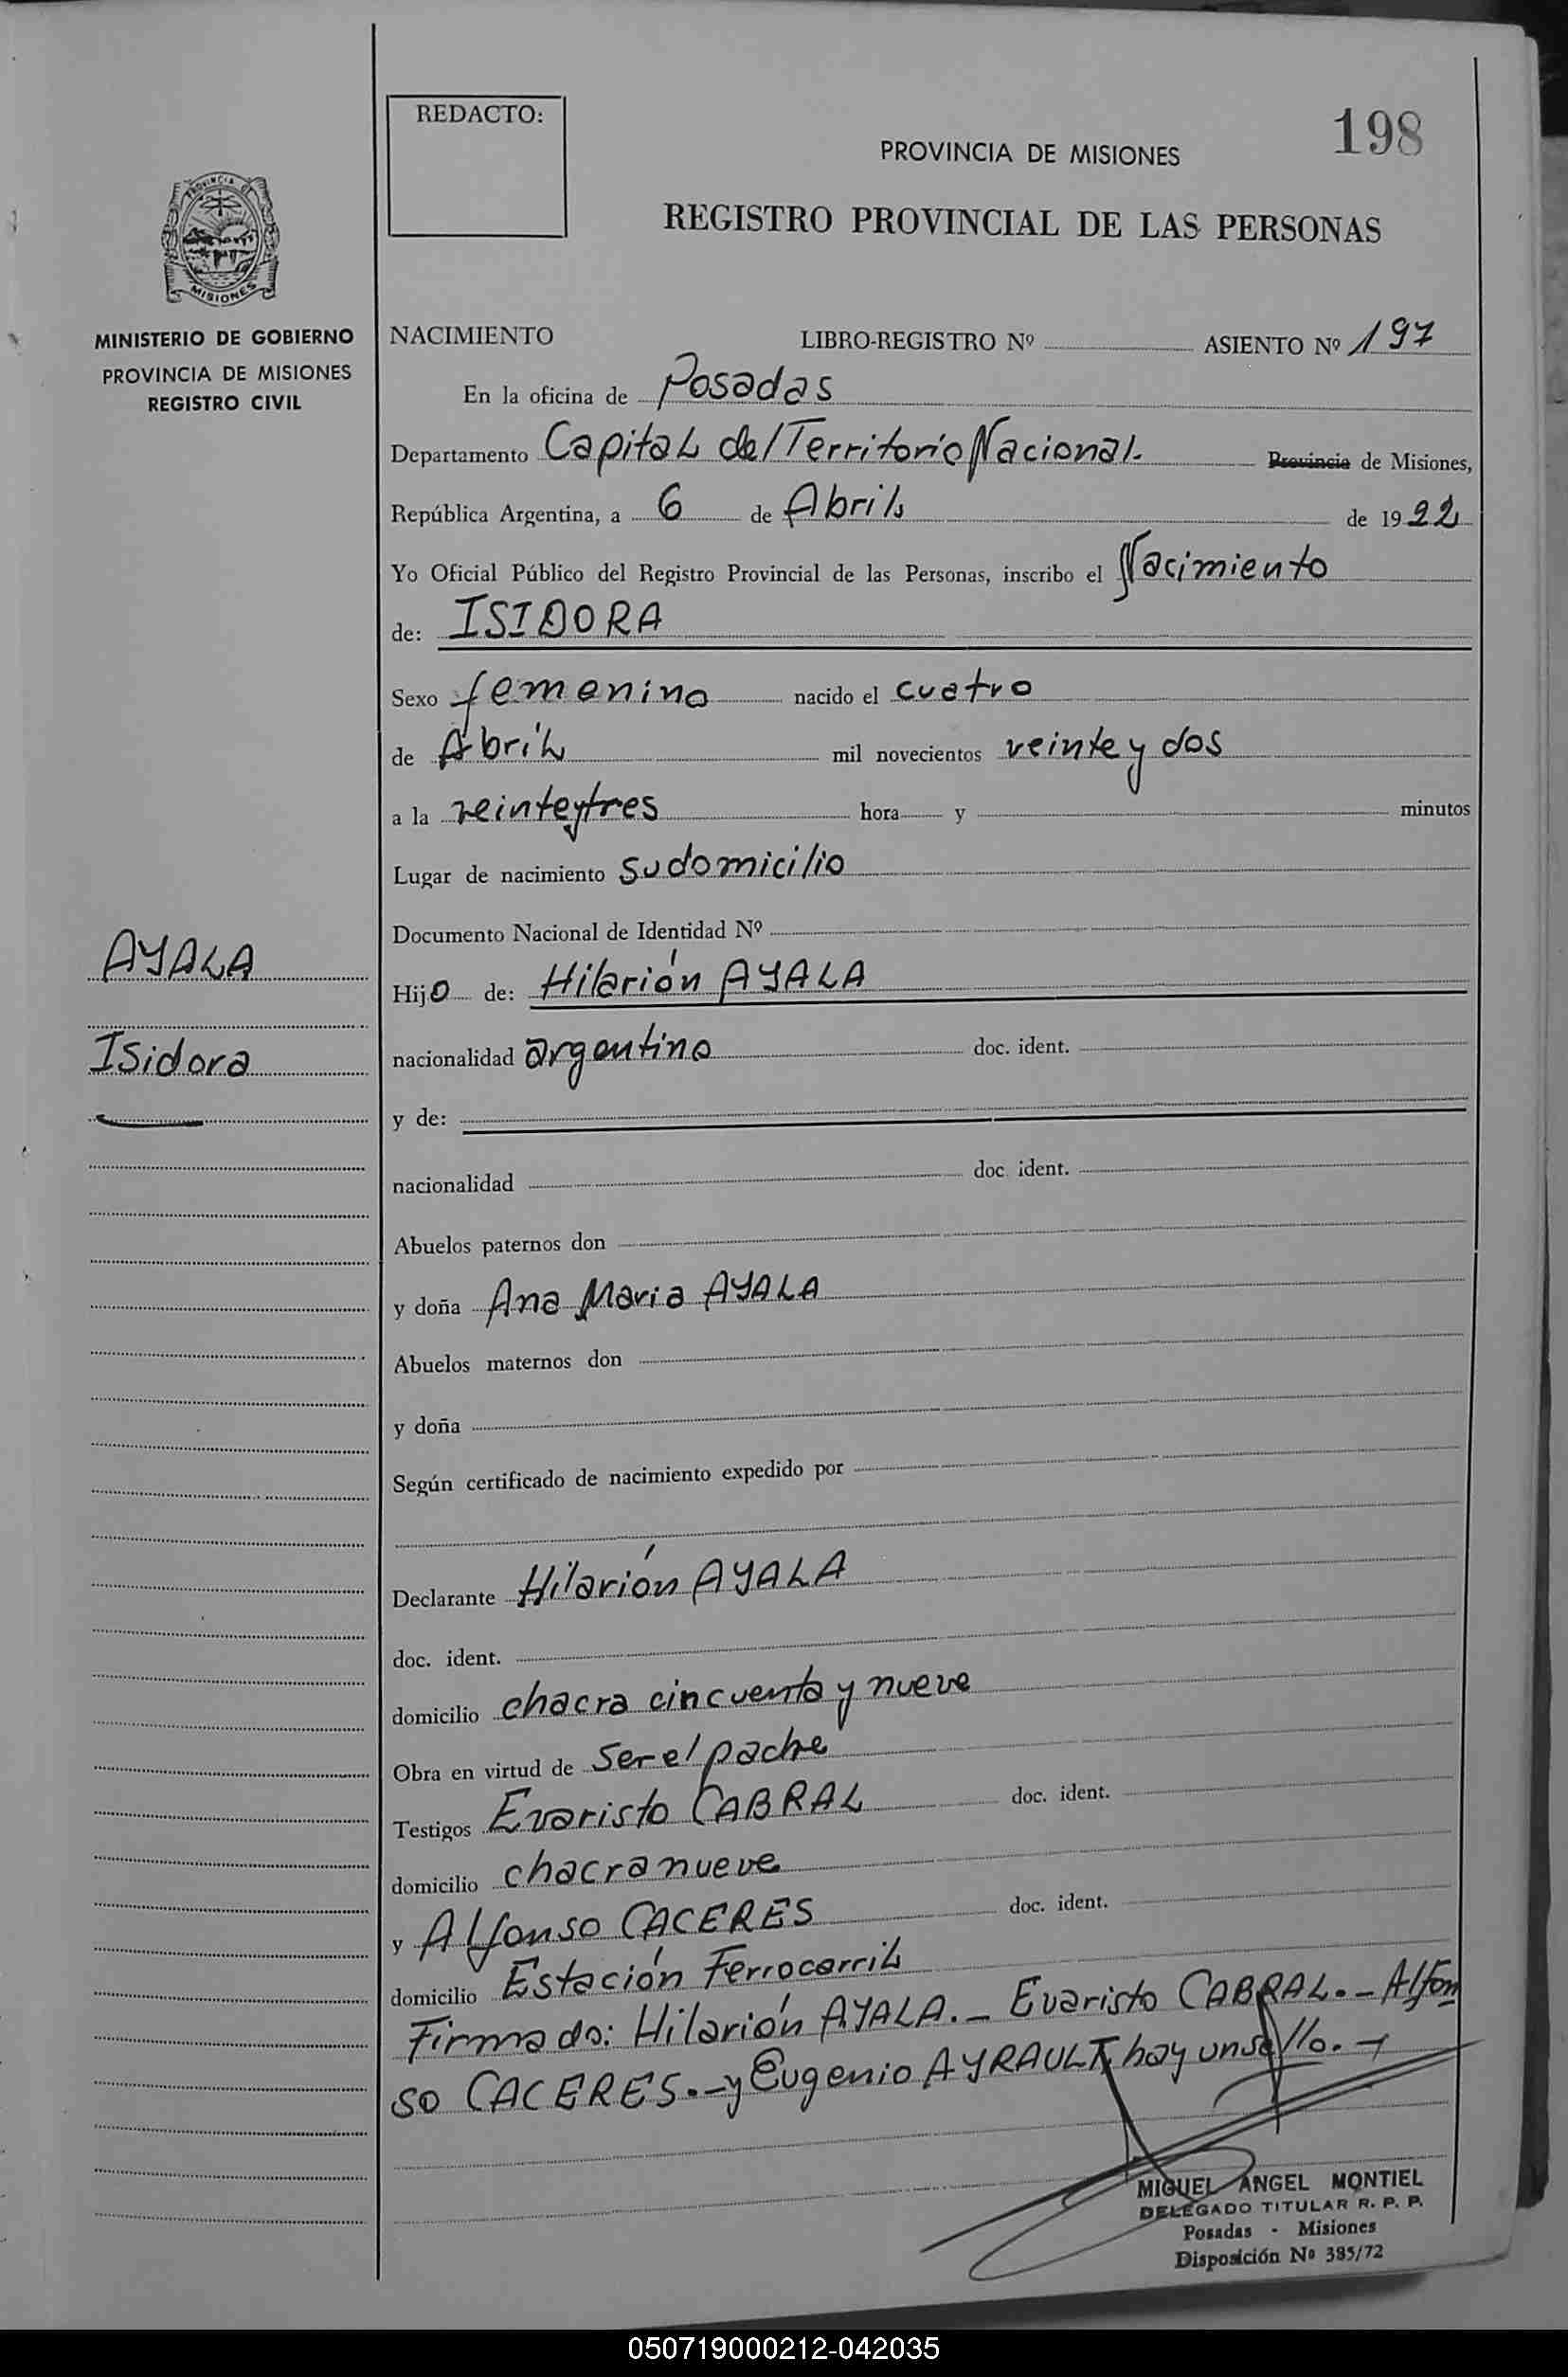 REDACTO:
198
PROVINCIA DE MISIONES
REGISTRO PROVINCIAL DE LAS PERSONAS
PROVINCIA DE
MISIONES
MINISTERIO DE GOBIERNO
PROVINCIA DE MISIONES
REGISTRO CIVIL
NACIMIENTO LIBRO-REGISTRO Nº ASIENTO Nº 197
En la oficina de Posadas
Departamento Capital del Territorio Nacional. Provincia de Misiones,
República Argentina, a 6 de Abril de 1922
Yo Oficial Público del Registro Provincial de las Personas, inscribo el Nacimiento
de: ISIDORA
Sexo femenino nacido el cuatro
de Abril mil novecientos veinte y dos
a la veinteytres hora y minutos
Lugar de nacimiento su domicilio
Documento Nacional de Identidad Nº
AYALA
Isidora
Hijo de: Hilarión AYALA
nacionalidad argentino doc. ident.
y de:
nacionalidad doc. ident.
Abuelos paternos don
y doña Ana Maria AYALA
Abuelos maternos don
y doña
Según certificado de nacimiento expedido por
Declarante Hilarión AYALA
doc. ident.
domicilio chacra cincuenta y nueve
Obra en virtud de ser el padre
Testigos Evaristo CABRAL doc. ident.
domicilio chacra nueve
y Alfonso CACERES doc. ident.
domicilio Estación Ferrocarril
Firmado: Hilarión AYALA.- Evaristo CABRAL.- Alfon
so CACERES.- y Eugenio AYRAULT hay un sello.-
MIGUEL ANGEL MONTIEL
DELEGADO TITULAR R. P. P.
Posadas - Misiones
Disposición Nº 385/72
050719000212-042035